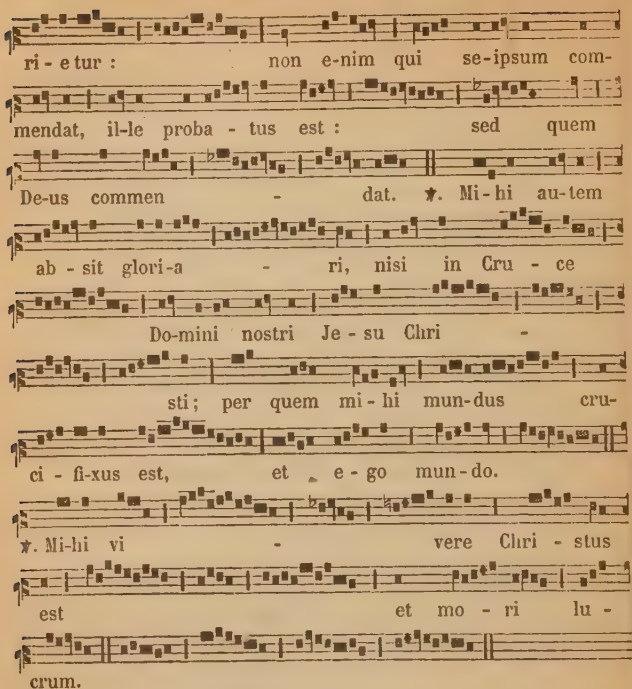 ri - e tur : non e-nim qui se-ipsum com-
mendat, il-le proba - tus est : sed quem
De-us commen - dat. ℣. Mi-hi au-tem
ab - sit glori-a - ri, nisi in Cru - ce
Do-mini nostri Je - su Chri -
sti; per quem mi-hi mun-dus cru-
ci - fi-xus est, et e - go mun-do.
℣. Mi-hi vi - vere Chri - stus
est et mo - ri lu -
crum.